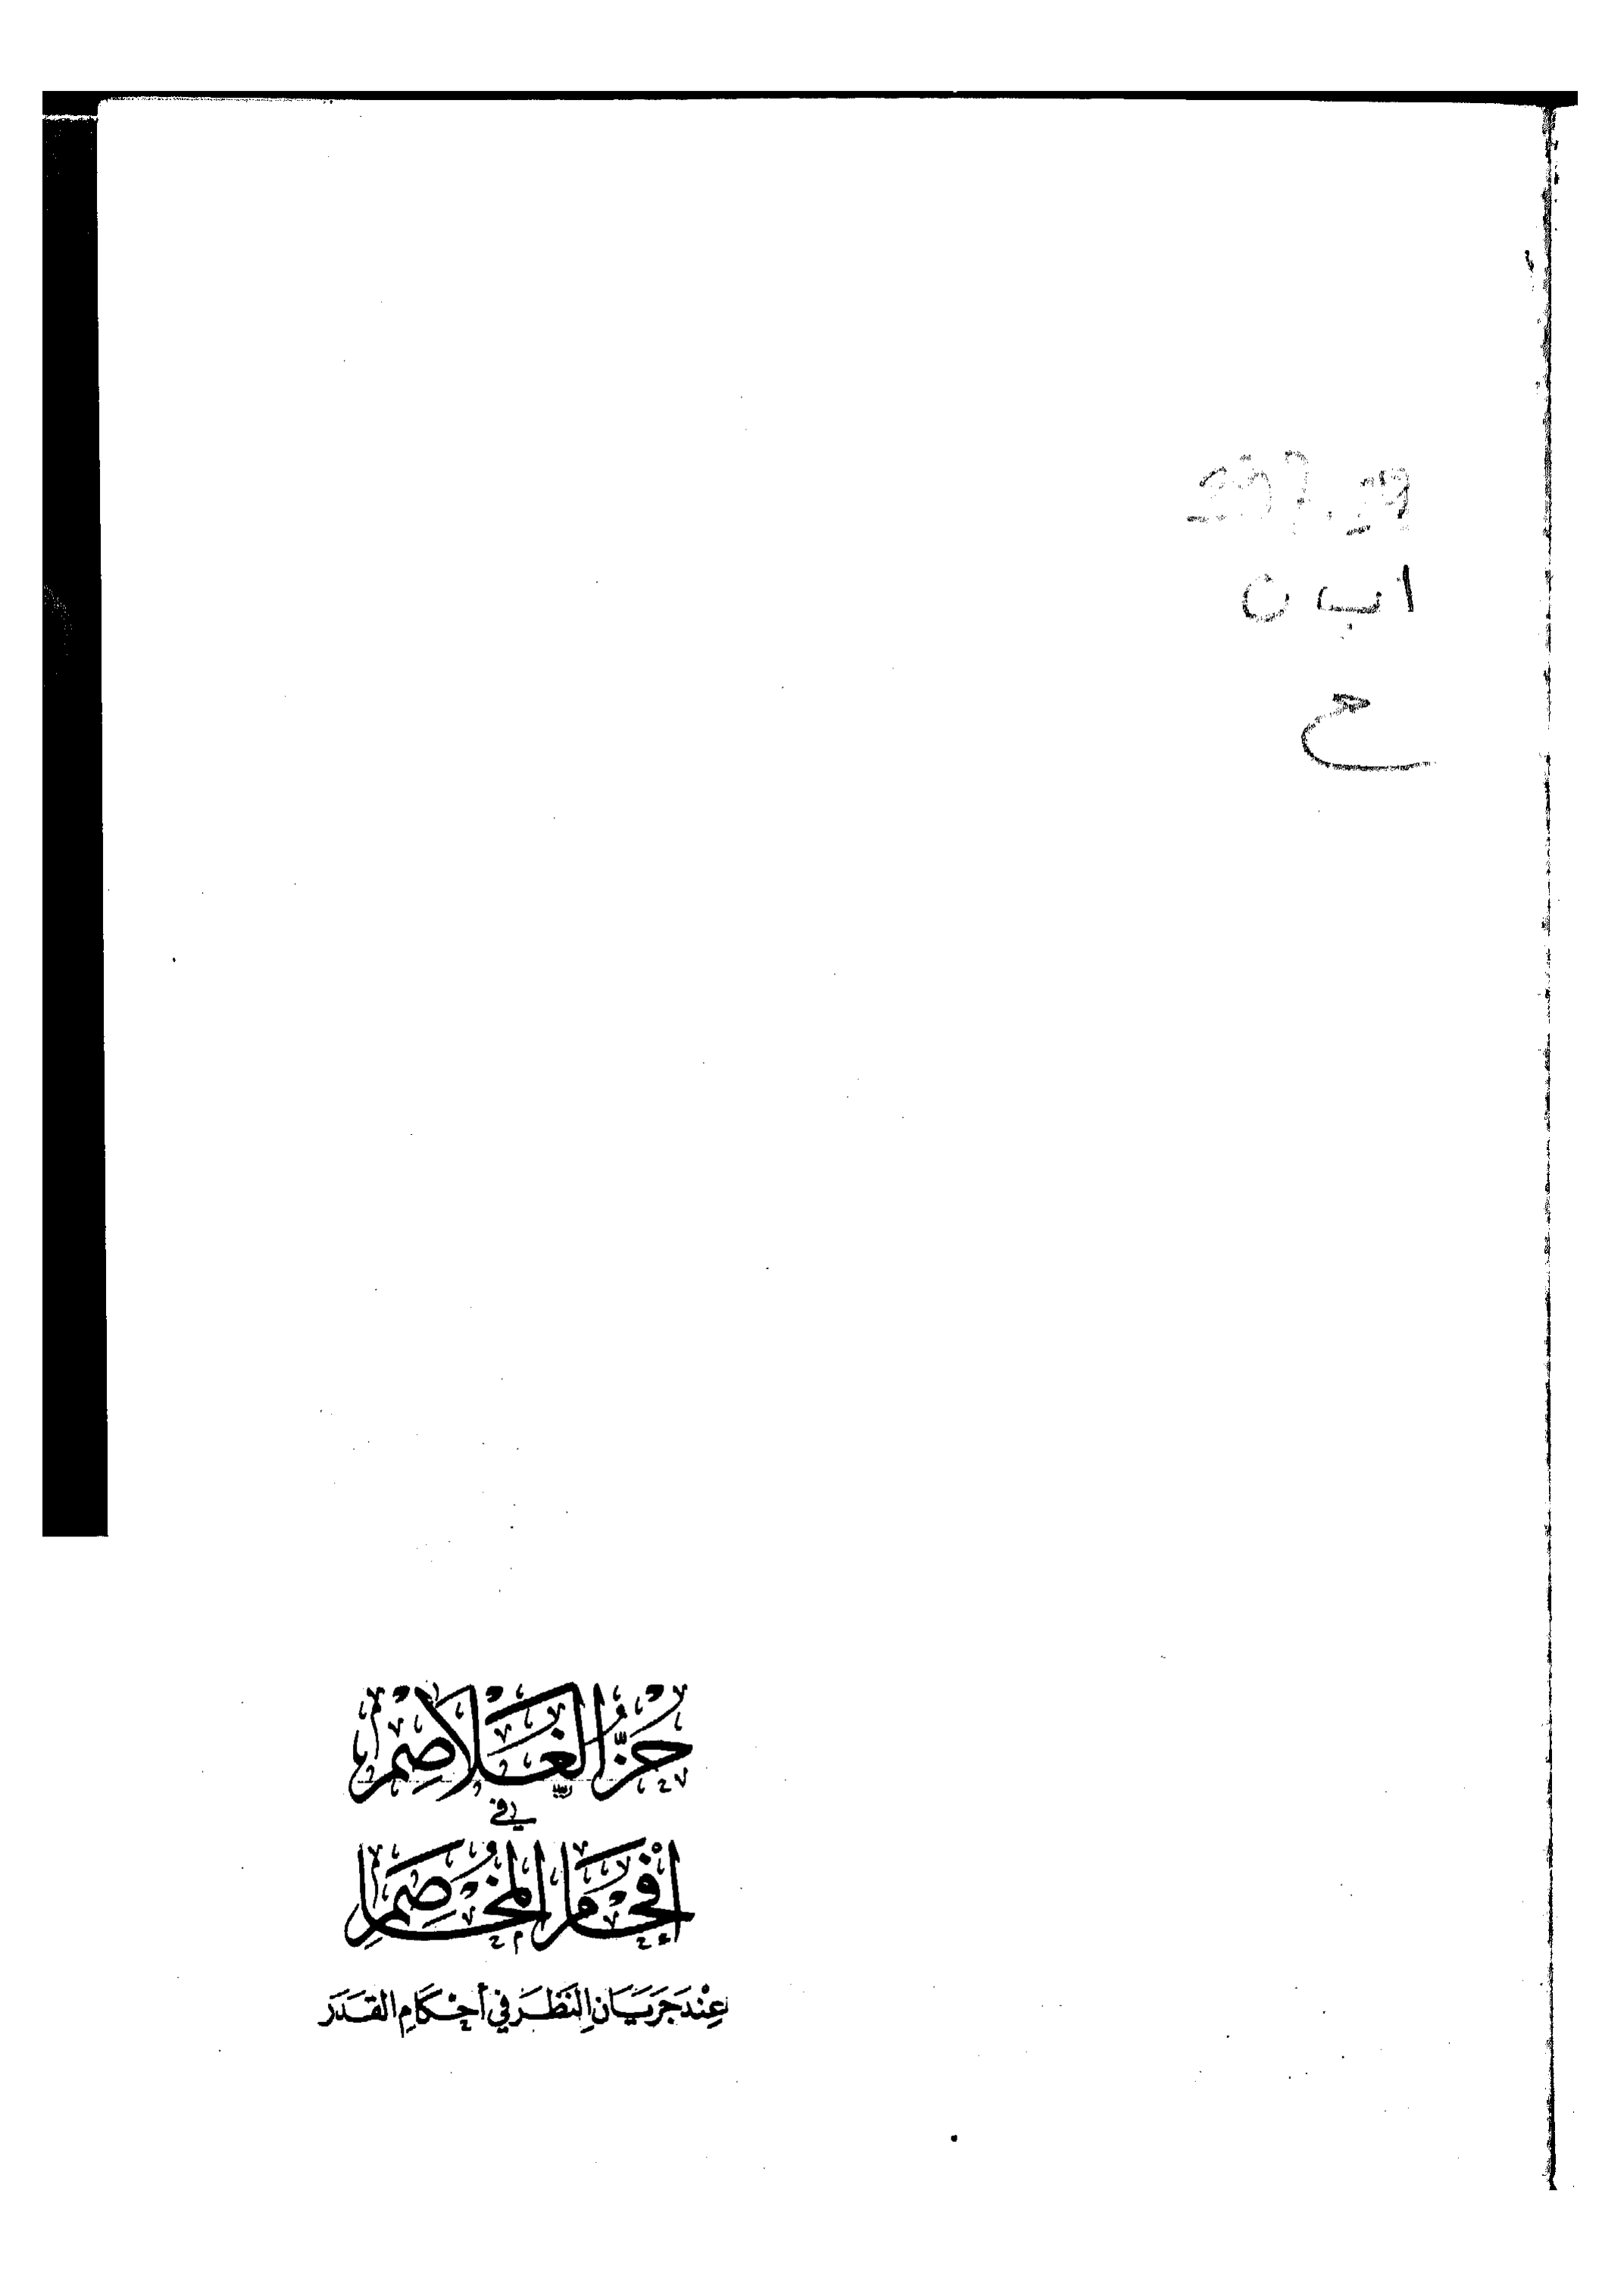 297.29
ا ب ن
ح
حَزُّ الغَلاصِم
في
إفحَام المُخَاصِم
عِنْدَ جَرَيَانِ النَّظَرِ في أحْكَامِ القَدَر